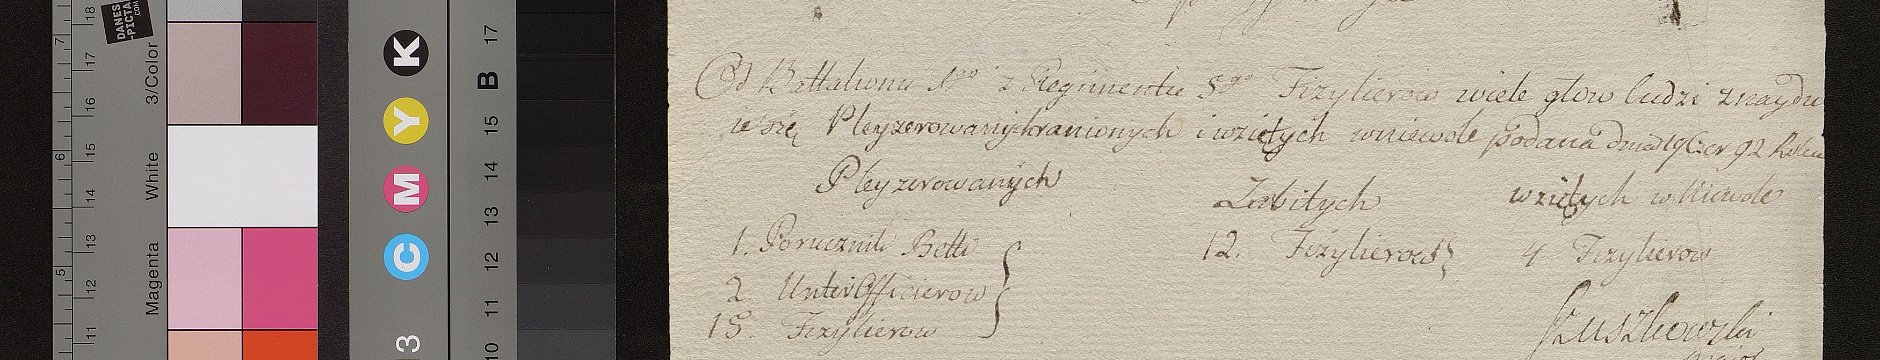 Od Battalionu 1go z Regimentu 5go Fizylierow wiele głow ludzi znaydu
ie się Pleyzerowanych ranionych i wziętych wniewole podana dnia 19 92 Roku
Pleyzerowanych Zabitych wziętych w Niewole
1. Porucznik Botti 12. Fizylierow 4 Fizylierow
2. UnterOfficierow
15. Fizylierow
Major
18
17
16
15
14
13
12
11
7
6
5
DANES
-PICTA
.COM
3/Color
White
Magenta
K
Y
M
C
3
17
B
15
14
13
12
11
10